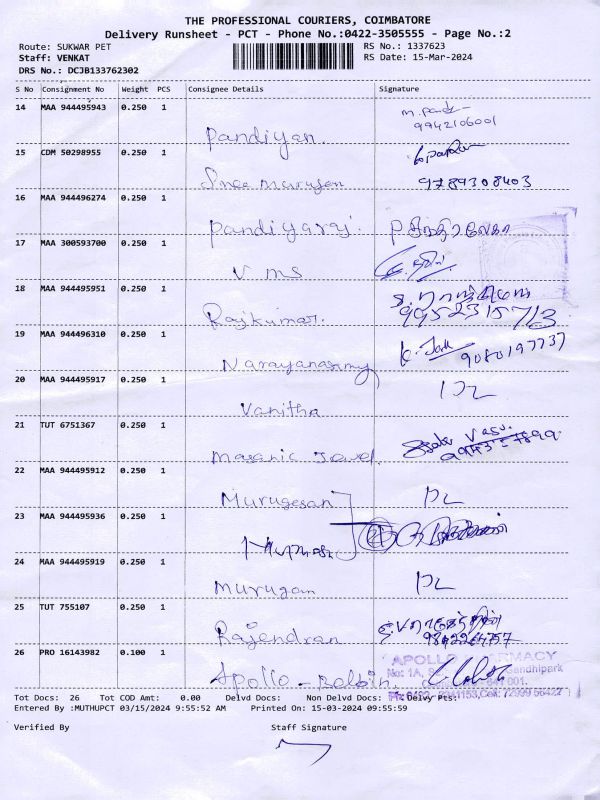 THE PROFESSIONAL COURIERS, COIMBATORE
Delivery Runsheet - PCT - Phone No.:0422-3505555 - Page No.:2
Route: SUKWAR PET RS No.: 1337623
Staff: VENKAT RS Date: 15-Mar-2024
DRS No.: DCJB133762302
S No Consignment No Weight PCS Consignee Details Signature
14 MAA 944495943 0.250 1 Pandiyan. 9942106001
15 CDM 50298955 0.250 1 Sree murugan 9789308403
16 MAA 944496274 0.250 1 Pandiyaraj.
17 MAA 300593700 0.250 1 V ms
18 MAA 944495951 0.250 1 Rajkumar. 9952315713
19 MAA 944496310 0.250 1 Narayanasamy 9080197737
20 MAA 944495917 0.250 1 Vanitha DL
21 TUT 6751367 0.250 1 Masanic Jewel.
22 MAA 944495912 0.250 1 Murugesan DL
23 MAA 944495936 0.250 1
24 MAA 944495919 0.250 1 Murugan DL
25 TUT 755107 0.250 1 Rajendran
26 PRO 16143982 0.100 1 Apollo - APOLLO PHARMACY
No: 1A, Gandhipark
641 001.
Tot Docs: 26 Tot COD Amt: 0.00 Delvd Docs: Non Delvd Docs: Delvy Pts:
Entered By :MUTHUPCT 03/15/2024 9:55:52 AM Printed On: 15-03-2024 09:55:59
Verified By Staff Signature